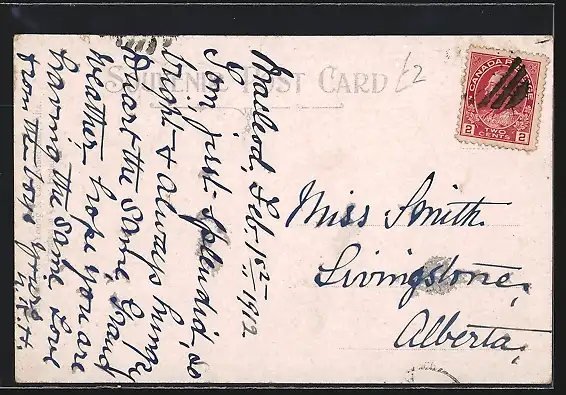 SOUVENIR POST CARD
£2
CANADA POSTAGE
2 TWO CENTS 2
Macleod, Feb. 1st 1912
I am just splendid, so
bright & always hungry
quart the same. Grand
weather, hope you are
having the same. Love
from the boys yours
Miss Smith.
Livingstone,
Alberta,